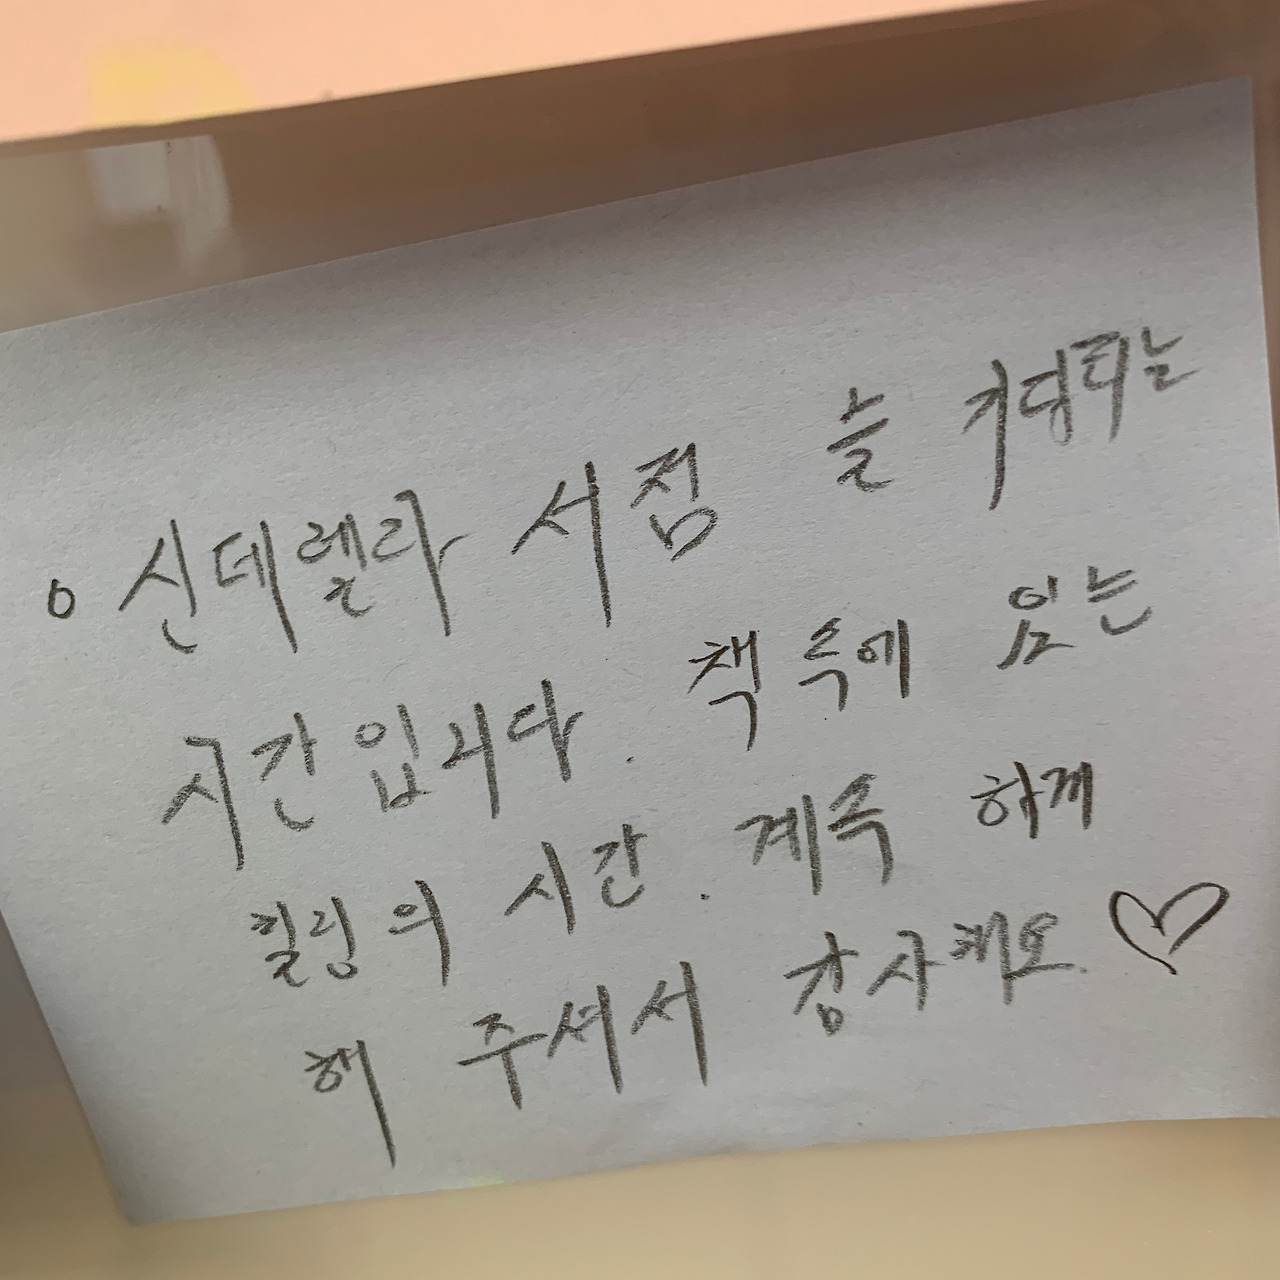 o 신데렐라 서점 늘 기대되는
시간입니다. 책 속에 있는
힐링의 시간. 계속 하께
해 주셔서 감사해요. ♡